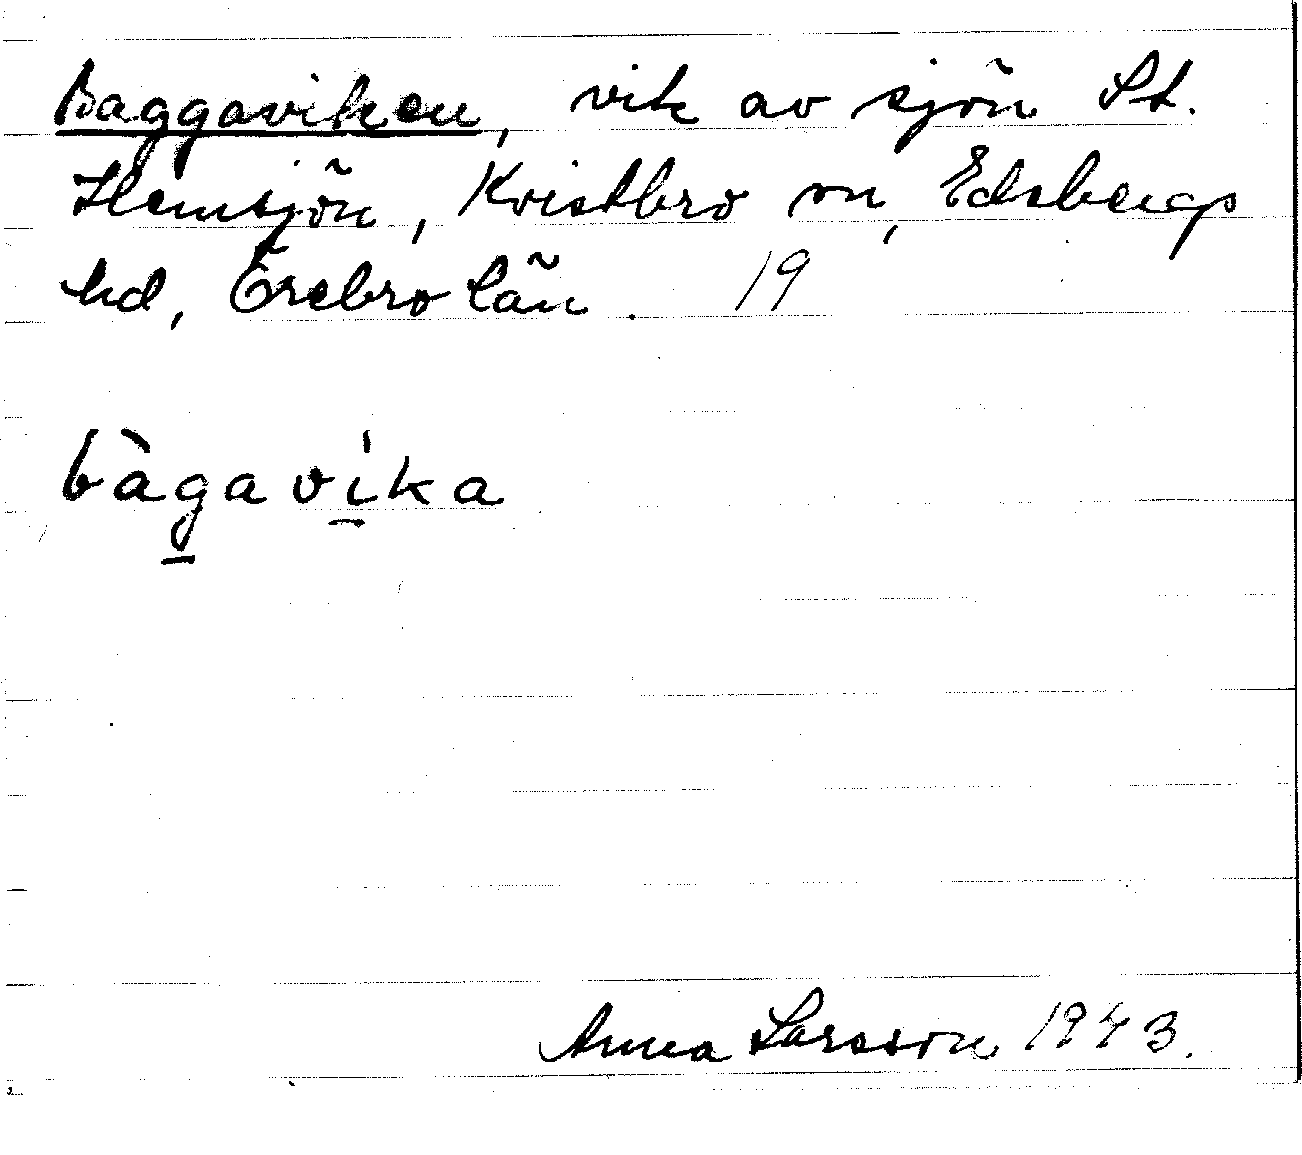 Baggaviken, vik av sjön St.
Hemsjön, Kvistbro sn, Edsbergs
hd, Örebro län. 19
bàgavi̠ka
Anna Larsson 1943.